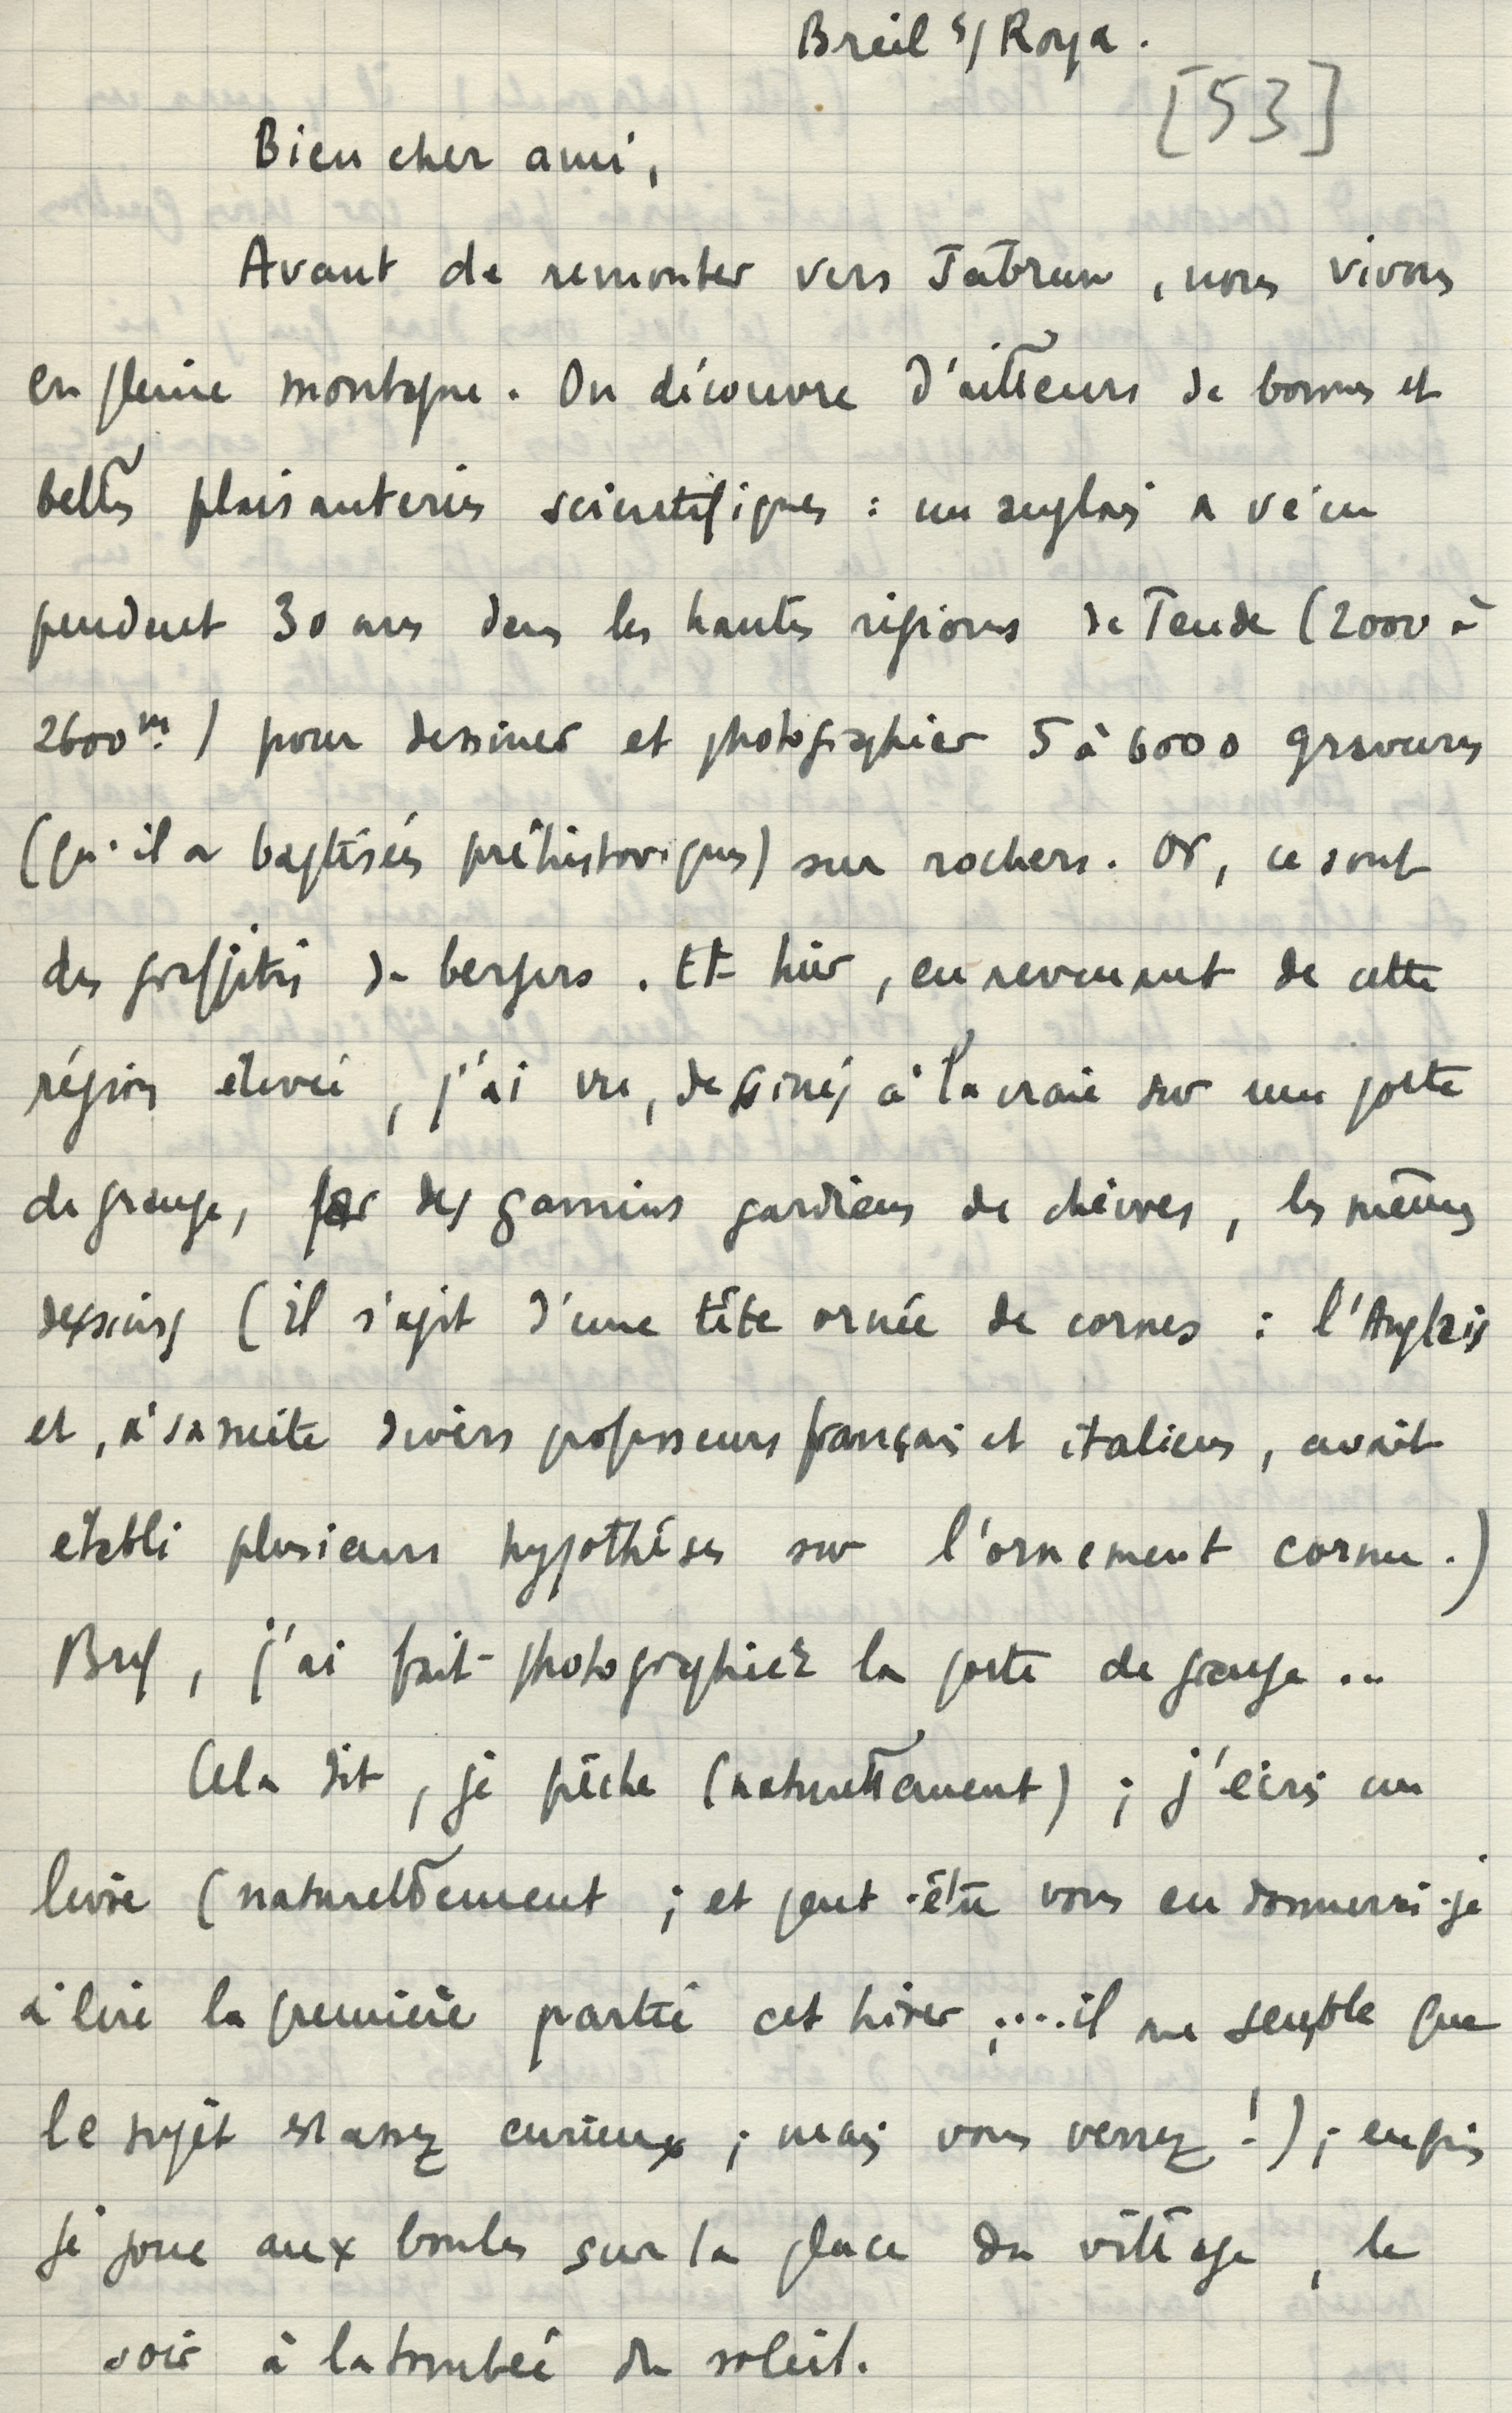 Breil s/ Roya.
[53]
Bien cher ami,
Avant de remonter vers Tabrun, nous vivons
en pleine montagne. On découvre d'ailleurs de bonnes et
belles plaisanteries scientifiques : un anglais a vécu
pendant 30 ans dans les hautes régions de Tende (2000 à
2600m.) pour dessiner et photographier 5 à 6000 gravures
(qu'il a baptisées préhistoriques) sur rochers. Or, ce sont
des graffitis de bergers. Et hier, en revenant de cette
région élevée, j'ai vu, dessinés à la craie sur une porte
de grange, par des gamins gardiens de chèvres, les mêmes
dessins (il s'agit d'une tête ornée de cornes : l'Anglais
et, à sa suite divers professeurs français et italiens, avait
établi plusieurs hypothèses sur l'ornement cornu.)
Bref, j'ai fait photographier la porte de grange ...
Cela dit, je pêche (naturellement) ; j'écris un
livre (naturellement ; et peut-être vous en donnerai-je
à lire la première partie cet hiver ;.... il me semble que
le sujet est assez curieux ; mais vous verrez !) ; enfin
je joue aux boules sur la place du village, le
soir à la tombée du soleil.